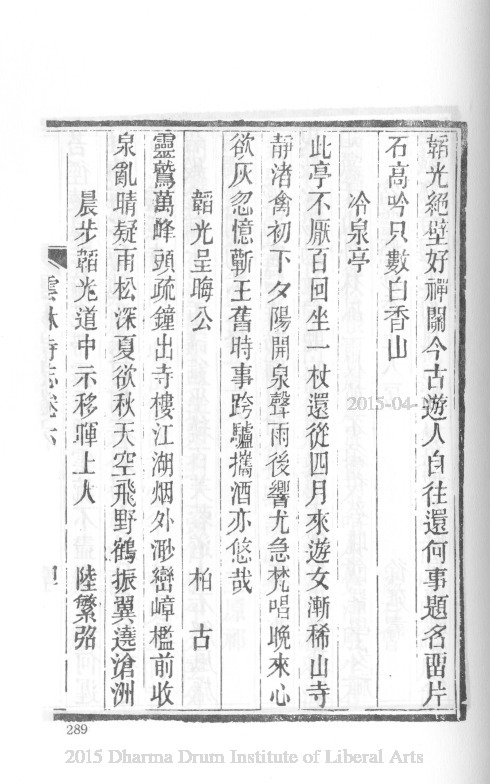 韜光絕壁好禪關今古遊人自往還何事題名畱片
石高吟只數白香山
冷泉亭
此亭不厭百回坐一杖還從四月來遊女漸稀山寺
靜渚禽初下夕陽開泉聲雨後響尤急梵唱晚來心
欲灰忽憶蘄王舊時事跨驢攜酒亦悠哉
韜光呈晦公 柏古
靈鷲萬峰頭疏鐘出寺樓江湖烟外渺巒嶂檻前收
泉亂晴疑雨松深夏欲秋天空飛野鶴振翼遶滄洲
晨步韜光道中示移暉上人 陸繁弨
雲林寺志卷六
289
2015-04-
2015 Dharma Drum Institute of Liberal Arts